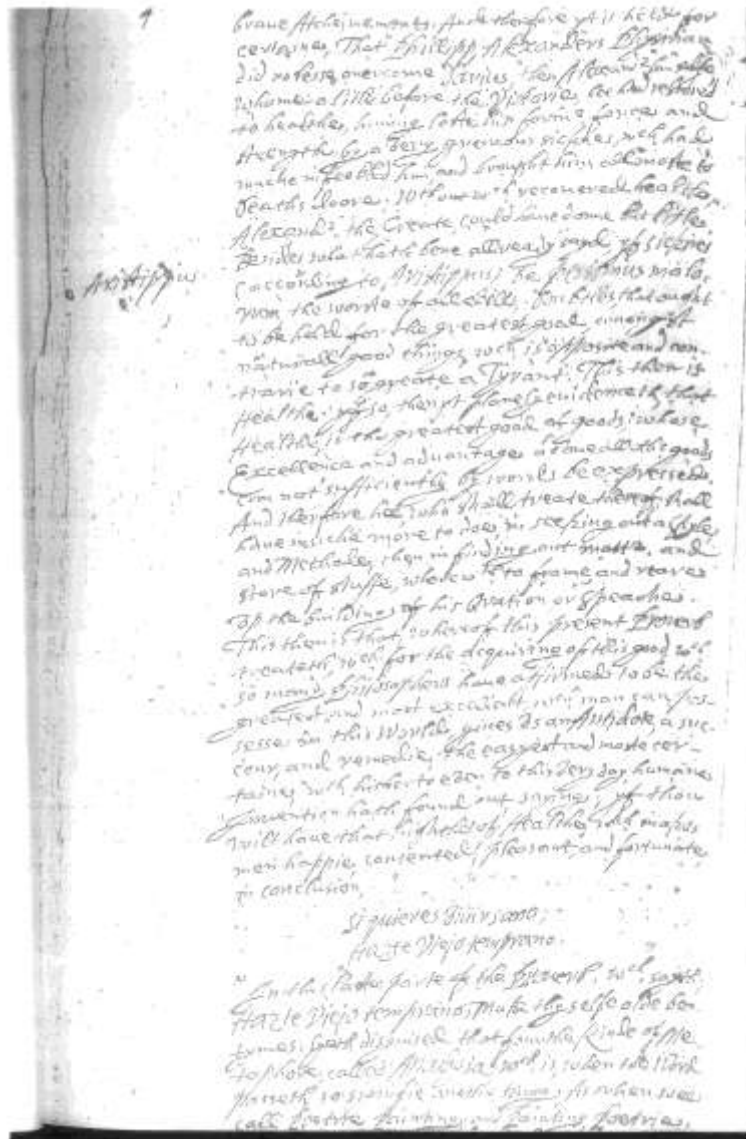 4
brave Atcheivements. And therefore yt is helde for
certayne, That Philipp Alexanders Phisitian
did no lesse overcome Darius, then Alexander him selfe
whome a little before the Victorie, hee had restored
to healthe, having loste his former forces and
strength by a very grievous sicknes, wch had
muche infeebled him, and brought him allmoste to
deaths doore. Without wch recovered healthe
Alexander the Greate could have donne but little.
Besides what hath bene allready sayd, yf sicknes
(according to Aristippus) be pessimus malo
Aristippus
rum the worste of all evills. that ought
to be held for the greatest good amongst
naturall good things, wch is opposite and con-
trarie to so greate a Tyrant. This then is
Healthe: yf so, then yt plainly evidenceth, that
Healthe is the greatest good of goods: whose
Excellence and advantage above all the goods
can not sufficiently by words be expressed.
And therefore hee who shall treate thereof, shall
have muche more to doe in seeking out a Style
and Methode, then in finding out matter, and
store of stuffe, wherewth to frame and reare
up the building of his Oration or Speache.
This then is that, whereof this present Proverb
treateth, wch for the acquiring of this good wch
so many Philosophers have affirmed to be the
greatest and most excellent, wch man can pos-
sesse in this World, gives us an Antidote, a suc-
cour, and remedie, the easyest and moste cer-
taine, wch hitherto even to this very day humaine
Invention hath found out sayinge, yf thou
wilt have that of Healthe, wch makes
men happie, contented, pleasant, and fortunate
in conclusion,
Si quieres vivir sano,
Hazte Viejo temprano.
In the parte of the Proverb, wch sayth,
Hazte Viejo temprano, Make thy selfe olde be-
tymes. that fourthe kinde of Me-
taphore, called wch is when the Word
As when wee
call Poetrie Painting, and Painting Poetrie,